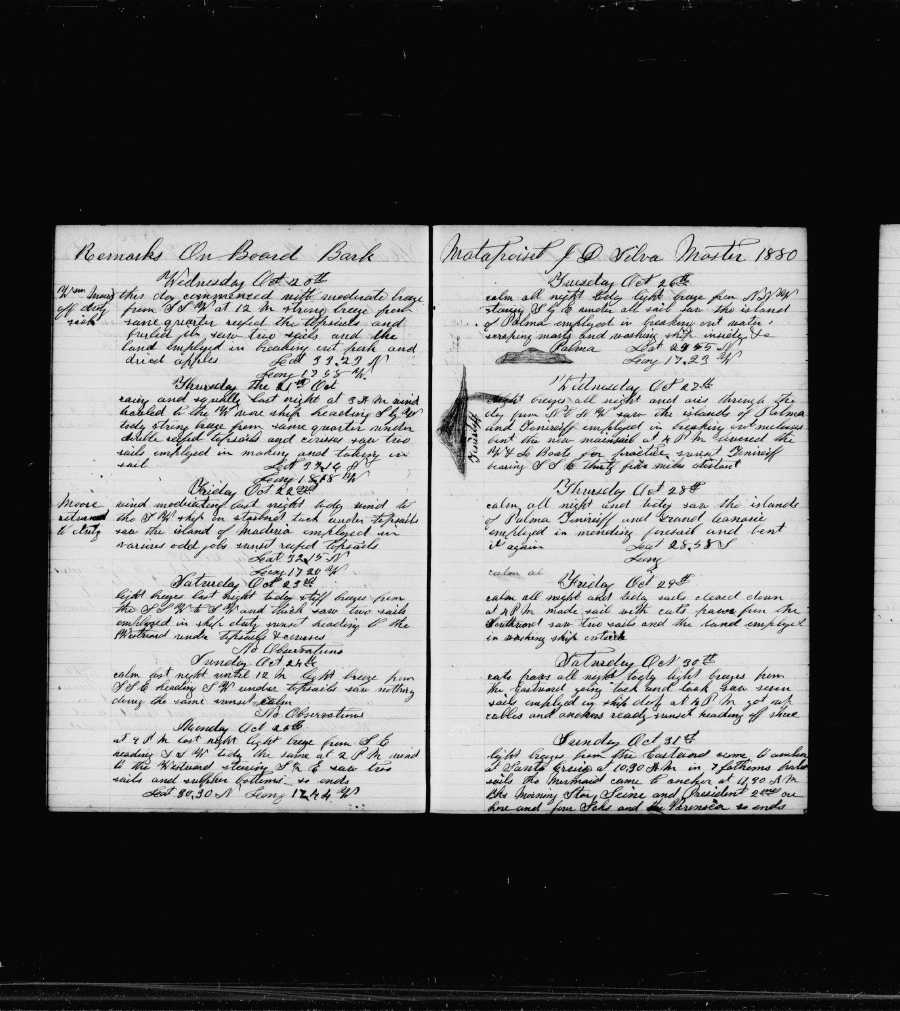 Remarks On Board Bark
Wednesday Oct 20th
Wm Moore
off duty
sick
this day commenced with moderate breeze
from S S W at 12 M strong breeze from
same quarter reefed the topsails and
furled jib saw two sails and the
land employed in breaking out pork and
dried apples Lat 33.23 N
Long 17 55 W.
Thursday the 21st Oct
rainy and squally last night at 3 A M wind
hauled to the W wore ship heading S by W
tody strong breeze from same quarter under
double reefed topsails and courses saw two
sails employed in making and taking in
sail Lat 32.16 N
Long 18.18 W
Friday Oct 22nd
Moore
returned
to duty
wind moderating last night tody wind to
the S W ship in starbord tack under topsails
saw the island of Maderia employed in
various odd jobs sunset reefed topsails
Lat 32.15 N
Long 17 20 W
Saturday Oct 23rd
light breezes last night tody stiff breeze from
the S S W to S W and thick saw two sails
employed in ship duty sunset heading to the
Westward under topsails & courses
No Observations
Sunday Oct 24th
calm last night until 12 M light breeze from
S S E heading S W under topsails saw nothing
during the same sunset calm
No Observations
Monday Oct 25th
at 4 P M last night light breeze from S E
heading S S W tody the same at 2 P M wind
to the Westward steering S by E saw two
sails and sulpher bottoms so ends
Lat 30.30 N Long 17.44 W
Matapoiset J D Silva Master 1880
Tuesday Oct 26th
calm all night tody light breeze from N N W
steering S by E under all sail saw the island
of Palma employed in breaking out water
scraping masts and washing ship inside &c
Palma Lat 29 55 N
Long 17.23 W
Wednesday Oct 27th
light breezes all night and airs through the
day from N to N W saw the islands of Palma
and Teneriff employed in breaking out molasses
bent the new mainsail at 4 P M lowered the
W & L Boats for practice sunset Teneriff
bearing S S E thirty five miles distant
Teneriff
Thursday Oct 28th
calm all night and tody saw the islands
of Palma Teneriff and Grand Canarie
employed in mending foresail and bent
it again Lat 28.58 S
Long
calm at
Friday Oct 29th
calm all night and tody sails clewed down
at 4 P M made sail with cats paws from the
Southward saw two sails and the land employed
in washing ship outside
Saturday Oct 30th
cats paws all night tody light breezes from
the Eastward going tack and tack saw seven
sails employed in ship duty at 4 P M got up
cables and anchors ready sunset heading off shore
Sunday Oct 31st
light breezes from the Eastward came to anchor
at Santa Cruz at 10.30 A M in 7 fathoms
sails the Mermaid came to anchor at 11.30 A M
Bks Morning Star, Seine and President 2nd are
here and four Schs and so ends